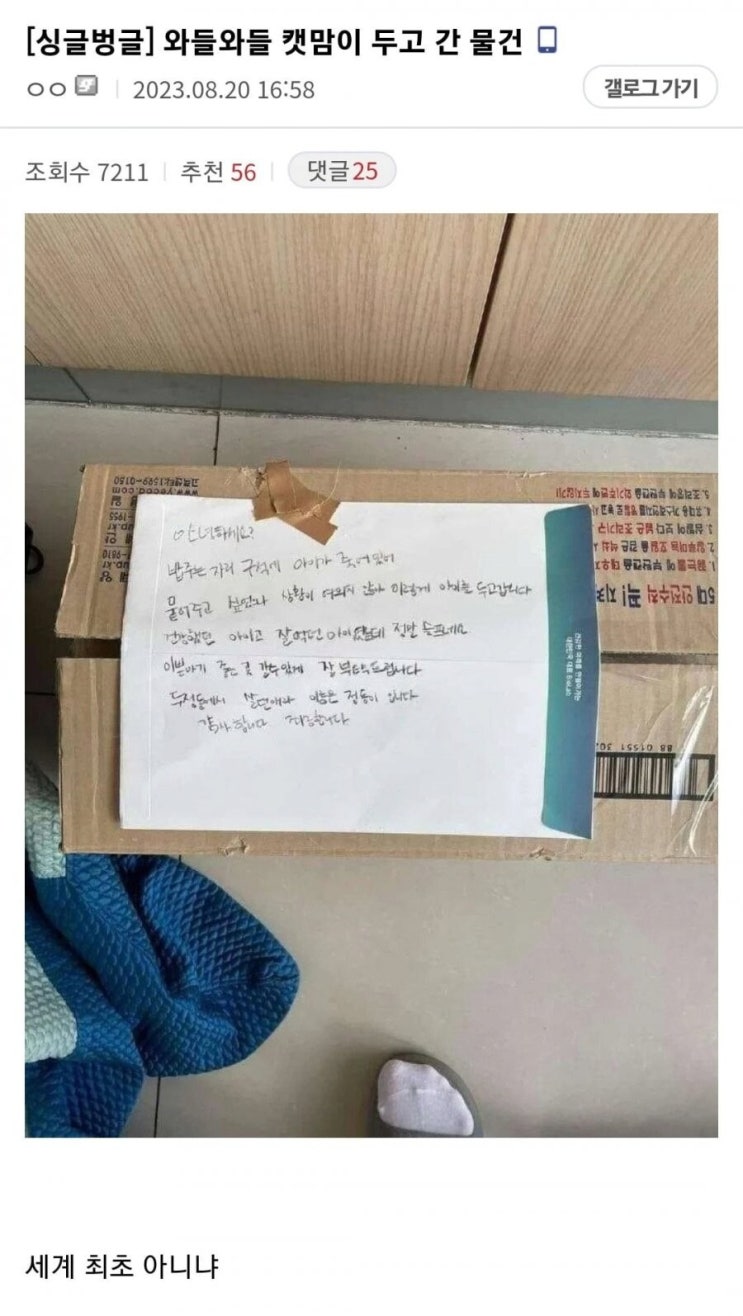 [싱글벙글] 와들와들 캣맘이 두고 간 물건
ㅇㅇ
2023.08.20 16:58
갤로그 가기
조회수 7211
추천 56
댓글 25
고객센터 1599-0150
5대 안전수칙 꼭! 지켜
안녕하세요?
밥주는 자리 구석에 아이가 죽어있어
묻어주고 싶었으나 상황이 여의치 않아 이렇게 아이를 두고갑니다
건강했던 아이고 잘 먹던 아이였는데 정말 슬프네요
이쁜아기 좋은 곳 갈수있게 잘 부탁드립니다
두정동에서 살던애라 이름은 정동이 입니다
감사합니다 죄송합니다
세계 최초 아니냐